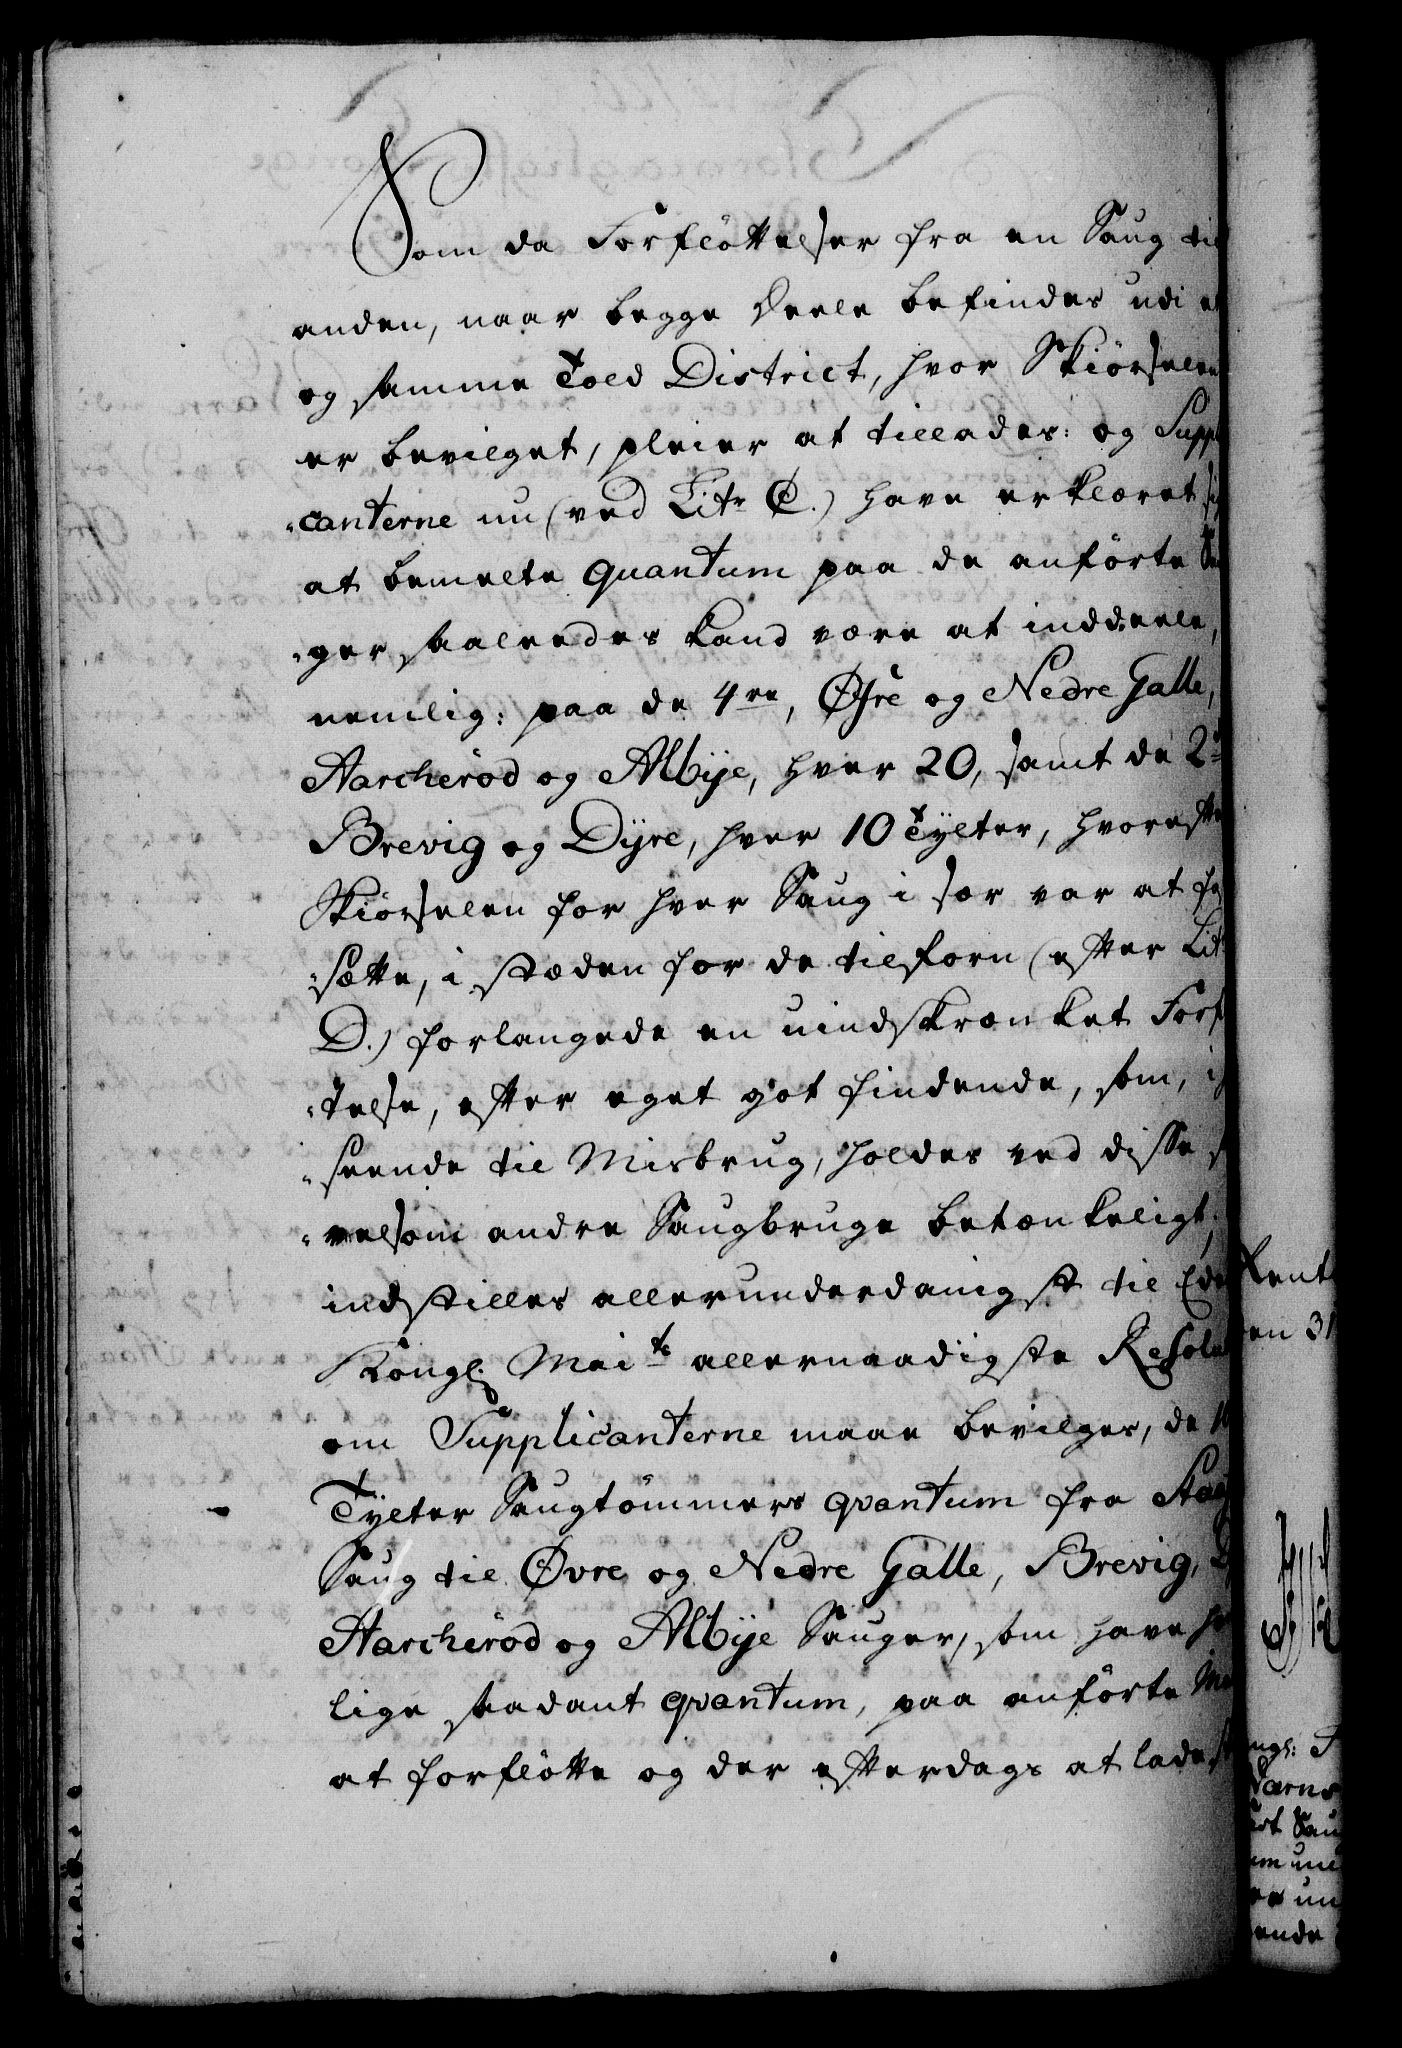 Som da Forfløttelser fra en Saug til
anden, naar begge Deele befindes udi et
og samme Told District, hvor Skiørselen
er bevilget, pleier at tillades: og Suppli
canterne nu (ved Litr C.) have erklæret sig
at bemelte quantum paa de anførte Sau
ger saaledes kand være at inddeele,
nemlig: paa de 4re, Øfre og Nedre Galle,
Aarcherød og Albije, hver 20, samt de 2de
Brevig og Dyre, hver 10 Tylter, hvorefter
Skiørselen for hver Saug i sær var at fast
sætte, i stæden for de tilforn (efter Litr
D.) forlangede en uindskrænket Forfløt
telse, efter eget got findende, som, i
seende til Misbrug, holdes ved disse saa
velsom andre Saugbruge betænkeligt;
indstilles allerunderdanigst til Eders
Kongl. Maits allernaadigste Resolut
om Supplicanterne maae bevilges, de
Tylter Saugtømmers qvantum fra
Saug til Øvre og Nedre Galle, Brevig,
Aarcherød og Albije Sauger, som have
lige saadant qvantum, paa anførte
at forfløtte og der efterdags at lade
Rent
en 31
ngl:
Værns
Sau
um
un
ende